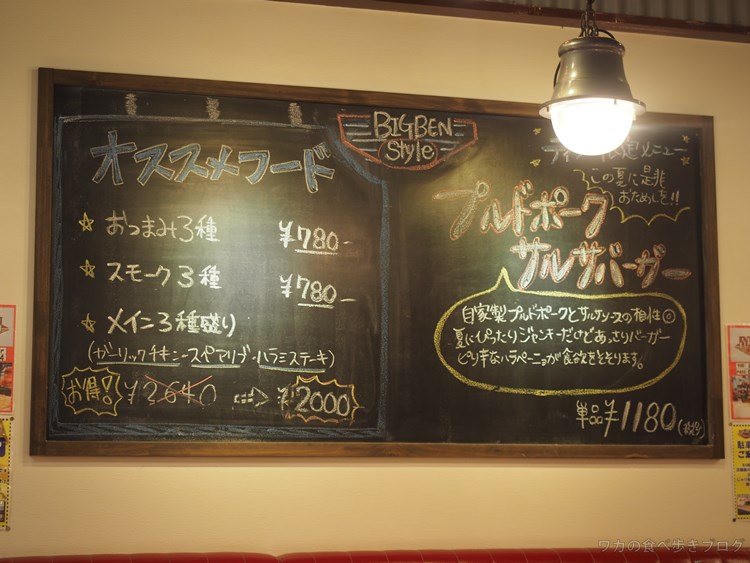 BIG BEN
Style
オススメフード
☆ おつまみ3種 ¥780-
☆ スモーク3種 ¥780-
☆ メイン3種盛り
(ガーリックチキン-スペアリブ-ハラミステーキ)
お得! ¥2640 ⇒ ¥2000
メニュー
この夏に是非
おためしを!!
プルドポーク
サルサバーガー
自家製プルドポークとサルサソースの相性◎
夏にぴったりジャンキーだけどあっさりバーガー
ピリ辛なハラペーニョが食欲をそそります。
単品¥1180(税抜)
ワカの食べ歩きブログ